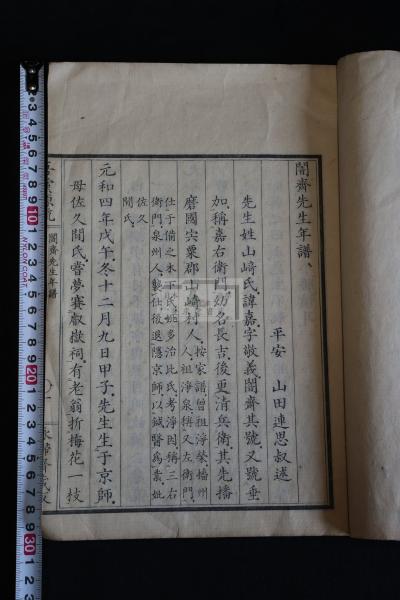 闇齋先生年譜、
平安 山田連思叔述
先生姓山﨑氏、諱嘉、字敬義、闇齋其號、又號垂
加、稱嘉右衛門、幼名長吉、後更清兵衛、其先播
磨國宍粟郡山﨑村人、
按家譜、曾祖淨榮、播州
人、祖淨泉、稱又左衛門、
仕于備之木下氏、娶多治比氏、考淨因、稱三右
衛門、泉州人、襲仕、後退隱京師、以鍼醫為業、妣
佐久
間氏、
元和四年戊午、冬十二月九日甲子、先生生于京師、
母佐久間氏、嘗夢賽叡嶽祠、有老翁折梅花一枝
闇齋先生年譜